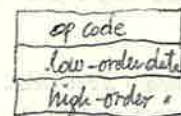 op code
low-order data
high-order "